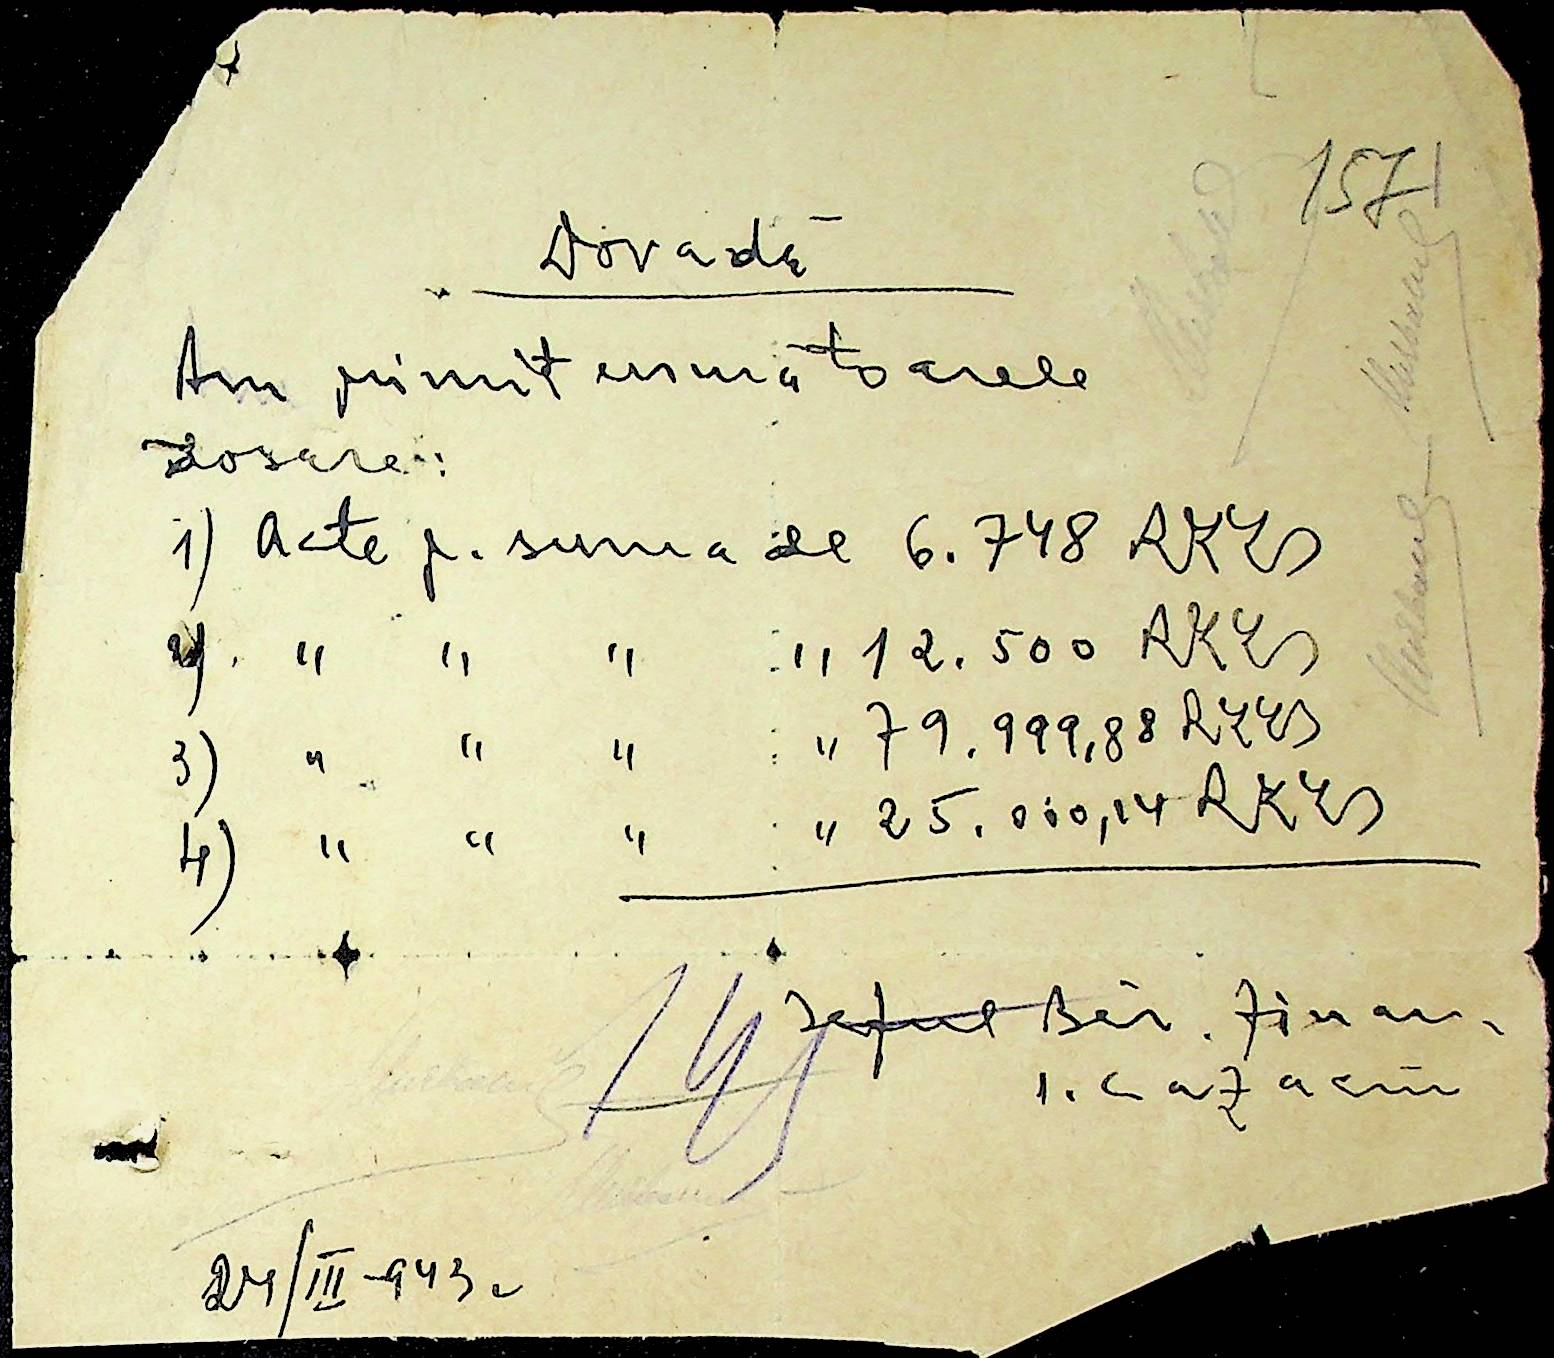 1571
Dovadă
Am primit următoarele
dosare:
1) Acte p. suma de 6.748 RKKS
2) " " " " 12.500 RKKS
3) " " " " 79.999,88 RKKS
4) " " " " 25.000,14 RKKS
Șeful Bir. Finan.
I. Cazaciu
24/III-943.